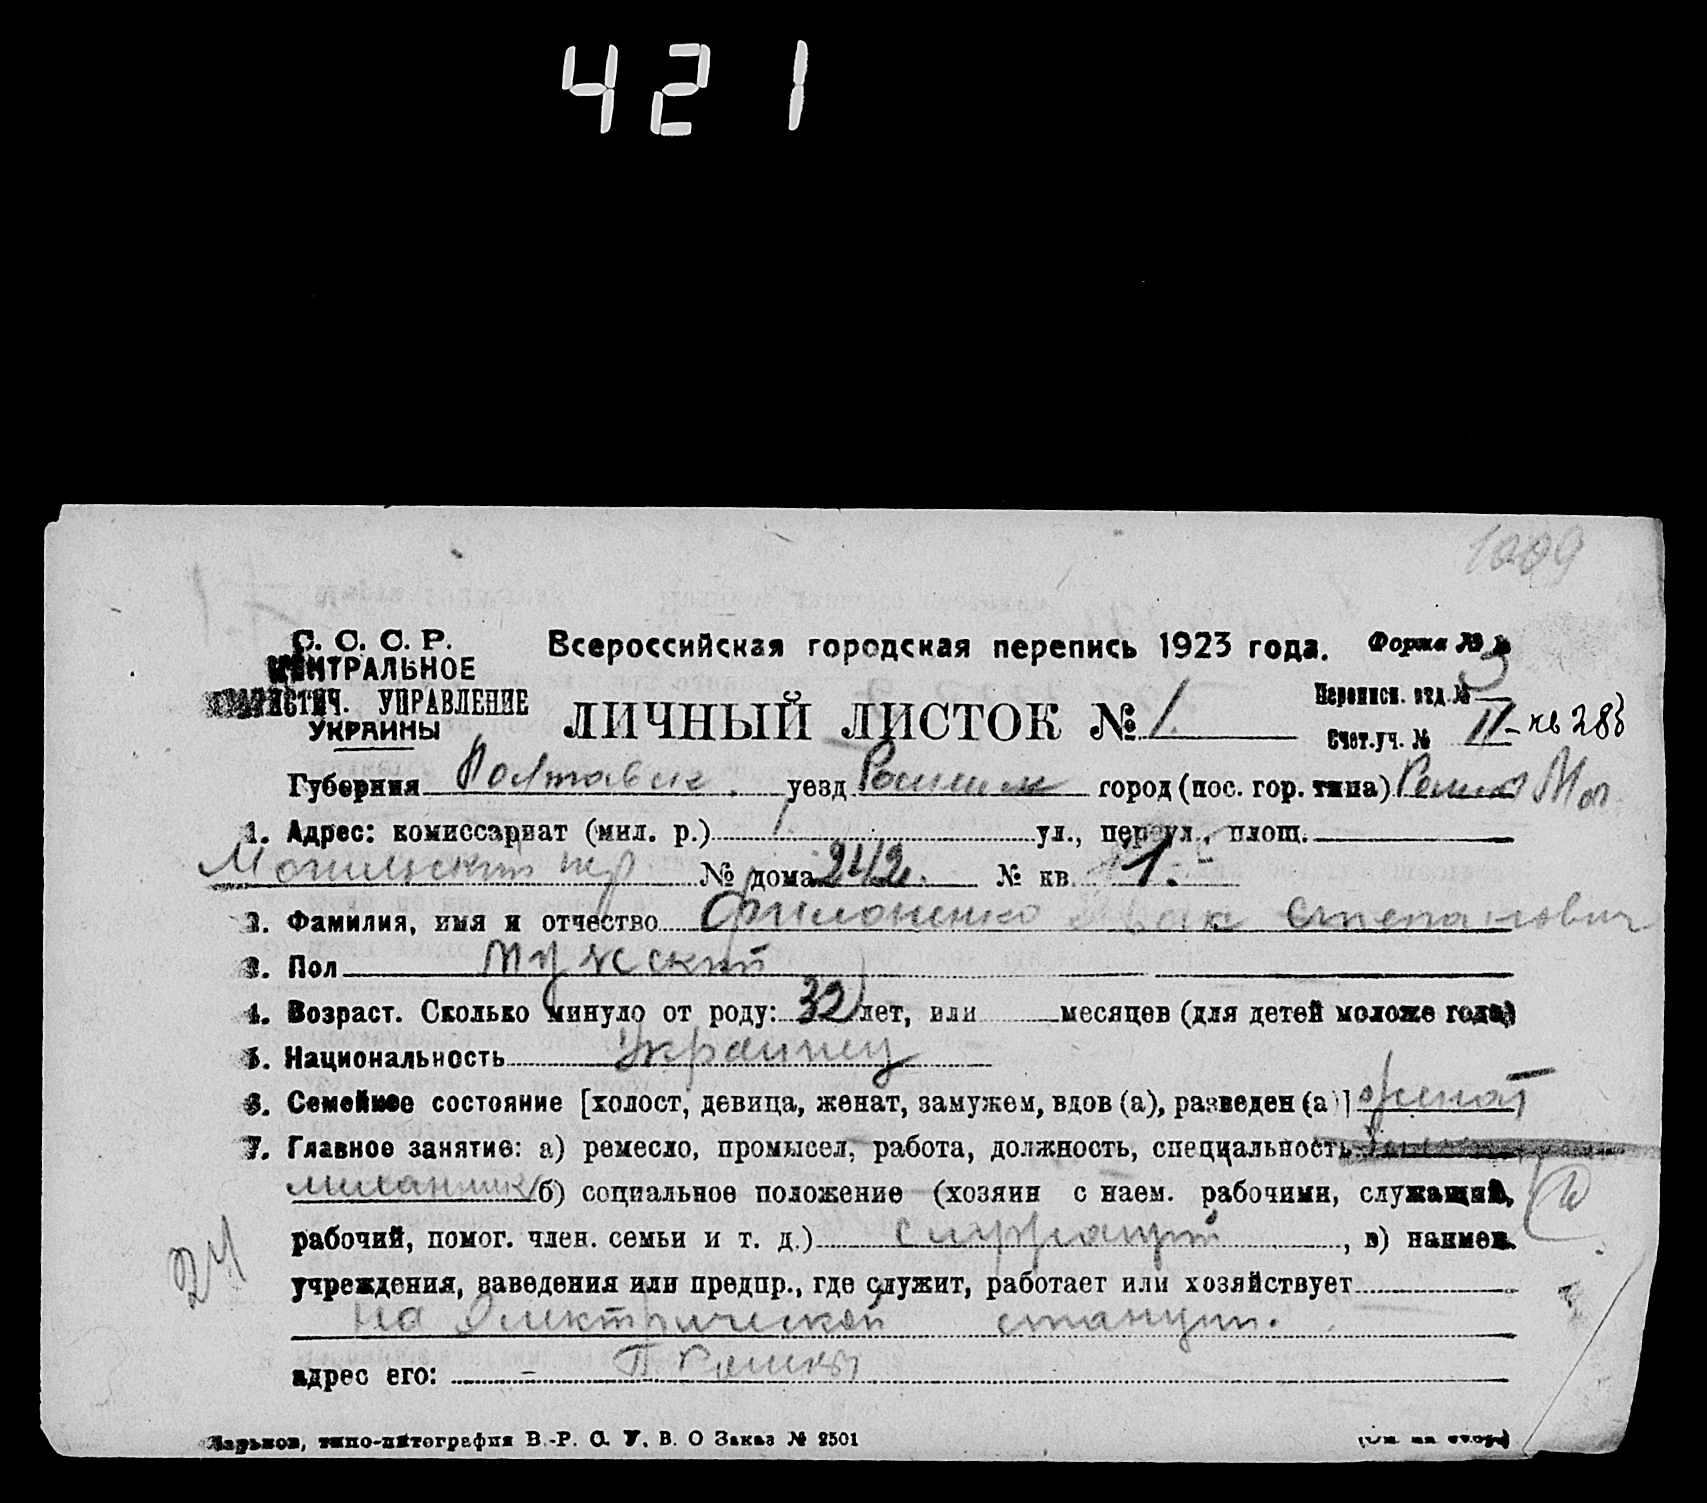 421
1009
С. С. С. Р.
ЦЕНТРАЛЬНОЕ
СТАТИСТИЧ. УПРАВЛЕНИЕ
УКРАИНЫ
Всероссийская городская перепись 1923 года.
Форма №
ЛИЧНЫЙ ЛИСТОК № 1.
Переписн. отд. № 3
Счет. уч. № II - кв 283
Губерния Полтавск. уезд Роменск город (пос. гор. типа) Ромен
1. Адрес: комиссариат (мил. р.) ул., пер. ул., площ.
пер № дома 242. № кв. 1.
2. Фамилия, имя и отчество Филоненко Степанович
3. Пол Мужской
4. Возраст. Сколько минуло от роду: 32 лет, или месяцев (для детей моложе года)
5. Национальность Украинец
6. Семейное состояние [холост, девица, женат, замужем, вдов (а), разведен (а)] женат
7. Главное занятие: а) ремесло, промысел, работа, должность, специальность
миханик б) социальное положение (хозяин с наем. рабочими, служащий,
рабочий, помог. член. семьи и т. д.) служащий, в) наимен.
24
учреждения, заведения или предпр., где служит, работает или хозяйствует
на Электрической станции.
адрес его: - Ромны
Харьков, типо-литография В.-Р. С. У. В. О Заказ № 2501
(См. на обор.)